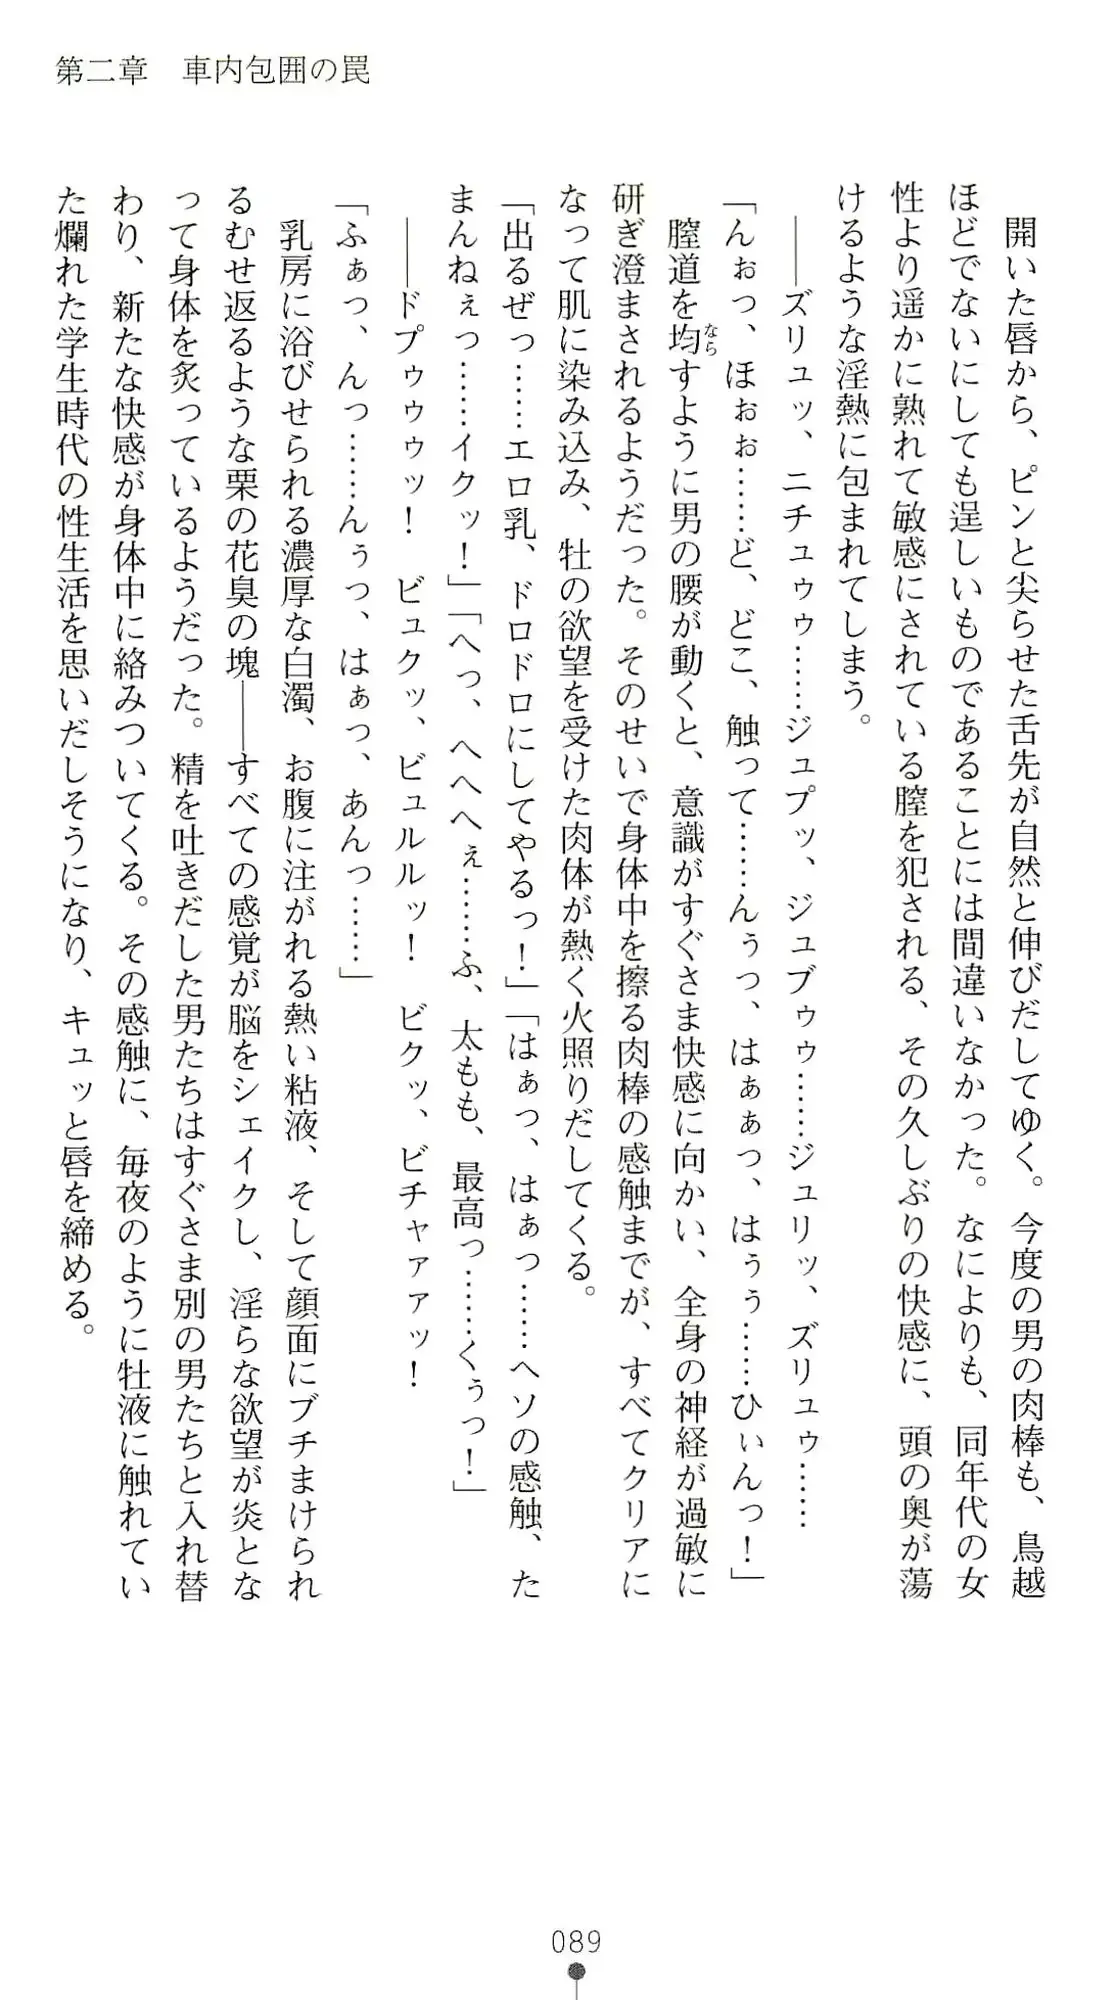 第二章　車内包囲の罠
開いた唇から、ピンと尖らせた舌先が自然と伸びだしてゆく。今度の男の肉棒も、鳥越
ほどでないにしても逞しいものであることには間違いなかった。なによりも、同年代の女
性より遥かに熟れて敏感にされている膣を犯される、その久しぶりの快感に、頭の奥が蕩
けるような淫熱に包まれてしまう。
――ズリュッ、ニチュゥゥ……ジュプッ、ジュブゥゥ……ジュリッ、ズリュゥ……
「んぉっ、ほぉぉ……ど、どこ、触って……んぅっ、はぁぁっ、はぅぅ……ひぃんっ！」
膣道を均すように男の腰が動くと、意識がすぐさま快感に向かい、全身の神経が過敏に
なら
研ぎ澄まされるようだった。そのせいで身体中を擦る肉棒の感触までが、すべてクリアに
なって肌に染み込み、牡の欲望を受けた肉体が熱く火照りだしてくる。
「出るぜっ……エロ乳、ドロドロにしてやるっ！」「はぁっ、はぁっ……ヘソの感触、た
まんねぇっ……イクッ！」「へっ、へへへぇ……ふ、太もも、最高っ……くぅっ！」
――ドプゥゥゥッ！　ビュクッ、ビュルルッ！　ビクッ、ビチャァァッ！
「ふぁっ、んっ……んぅっ、はぁっ、あんっ……」
乳房に浴びせられる濃厚な白濁、お腹に注がれる熱い粘液、そして顔面にブチまけられ
るむせ返るような栗の花臭の塊――すべての感覚が脳をシェイクし、淫らな欲望が炎とな
って身体を炙っているようだった。精を吐きだした男たちはすぐさま別の男たちと入れ替
わり、新たな快感が身体中に絡みついてくる。その感触に、毎夜のように牡液に触れてい
た爛れた学生時代の性生活を思いだしそうになり、キュッと唇を締める。
089